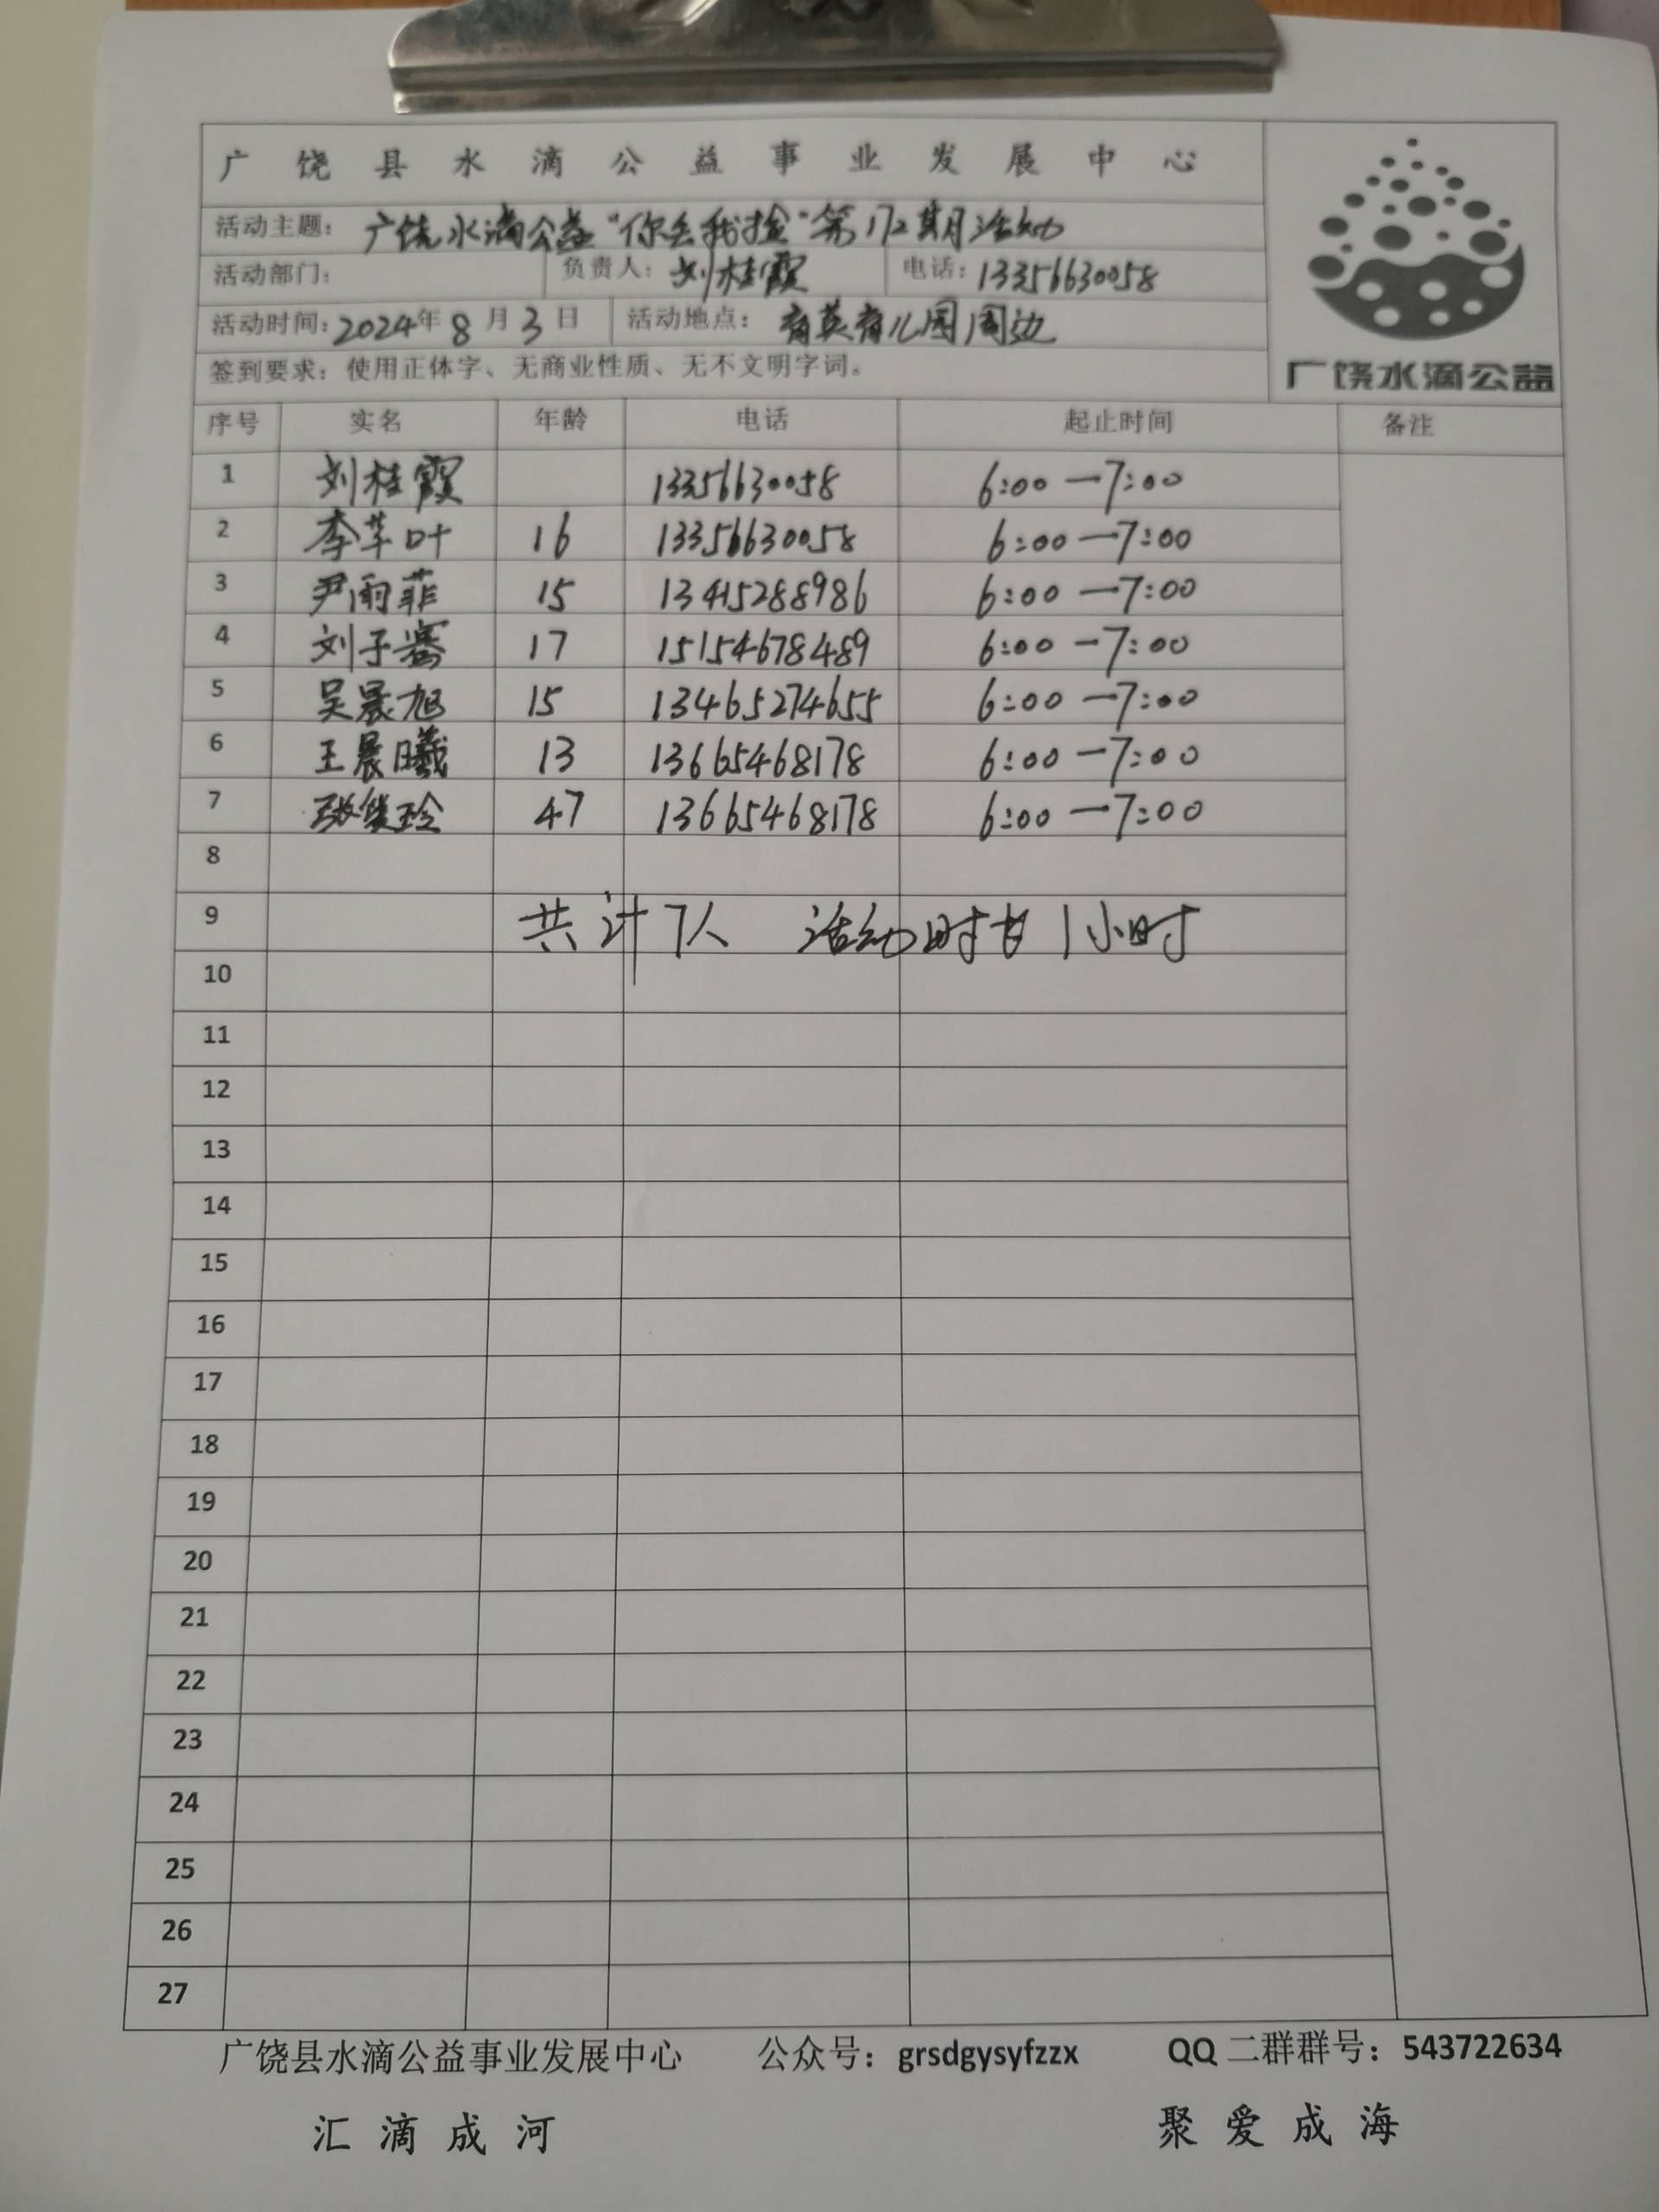 广饶县水滴公益事业发展中心
活动主题：广饶水滴公益“你丢我捡”第172期活动
活动部门： 负责人：刘桂霞 电话：13356630058
活动时间：2024年8月3日 活动地点：育英育儿园周边
签到要求：使用正体字、无商业性质、无不文明字词。
广饶水滴公益
序号 实名 年龄 电话 起止时间 备注
1 刘桂霞 13356630058 6:00—7:00
2 李芊叶 16 13356630058 6:00—7:00
3 尹雨菲 15 13415288986 6:00—7:00
4 刘子骞 17 15154678489 6:00—7:00
5 吴晨旭 15 13465274655 6:00—7:00
6 王晨曦 13 13665468178 6:00—7:00
7 张 玲 47 13665468178 6:00—7:00
8
9 共计7人 活动时长1小时
10
11
12
13
14
15
16
17
18
19
20
21
22
23
24
25
26
27
广饶县水滴公益事业发展中心 公众号：grsdgysyfzzx QQ二群群号：543722634
汇滴成河 聚爱成海